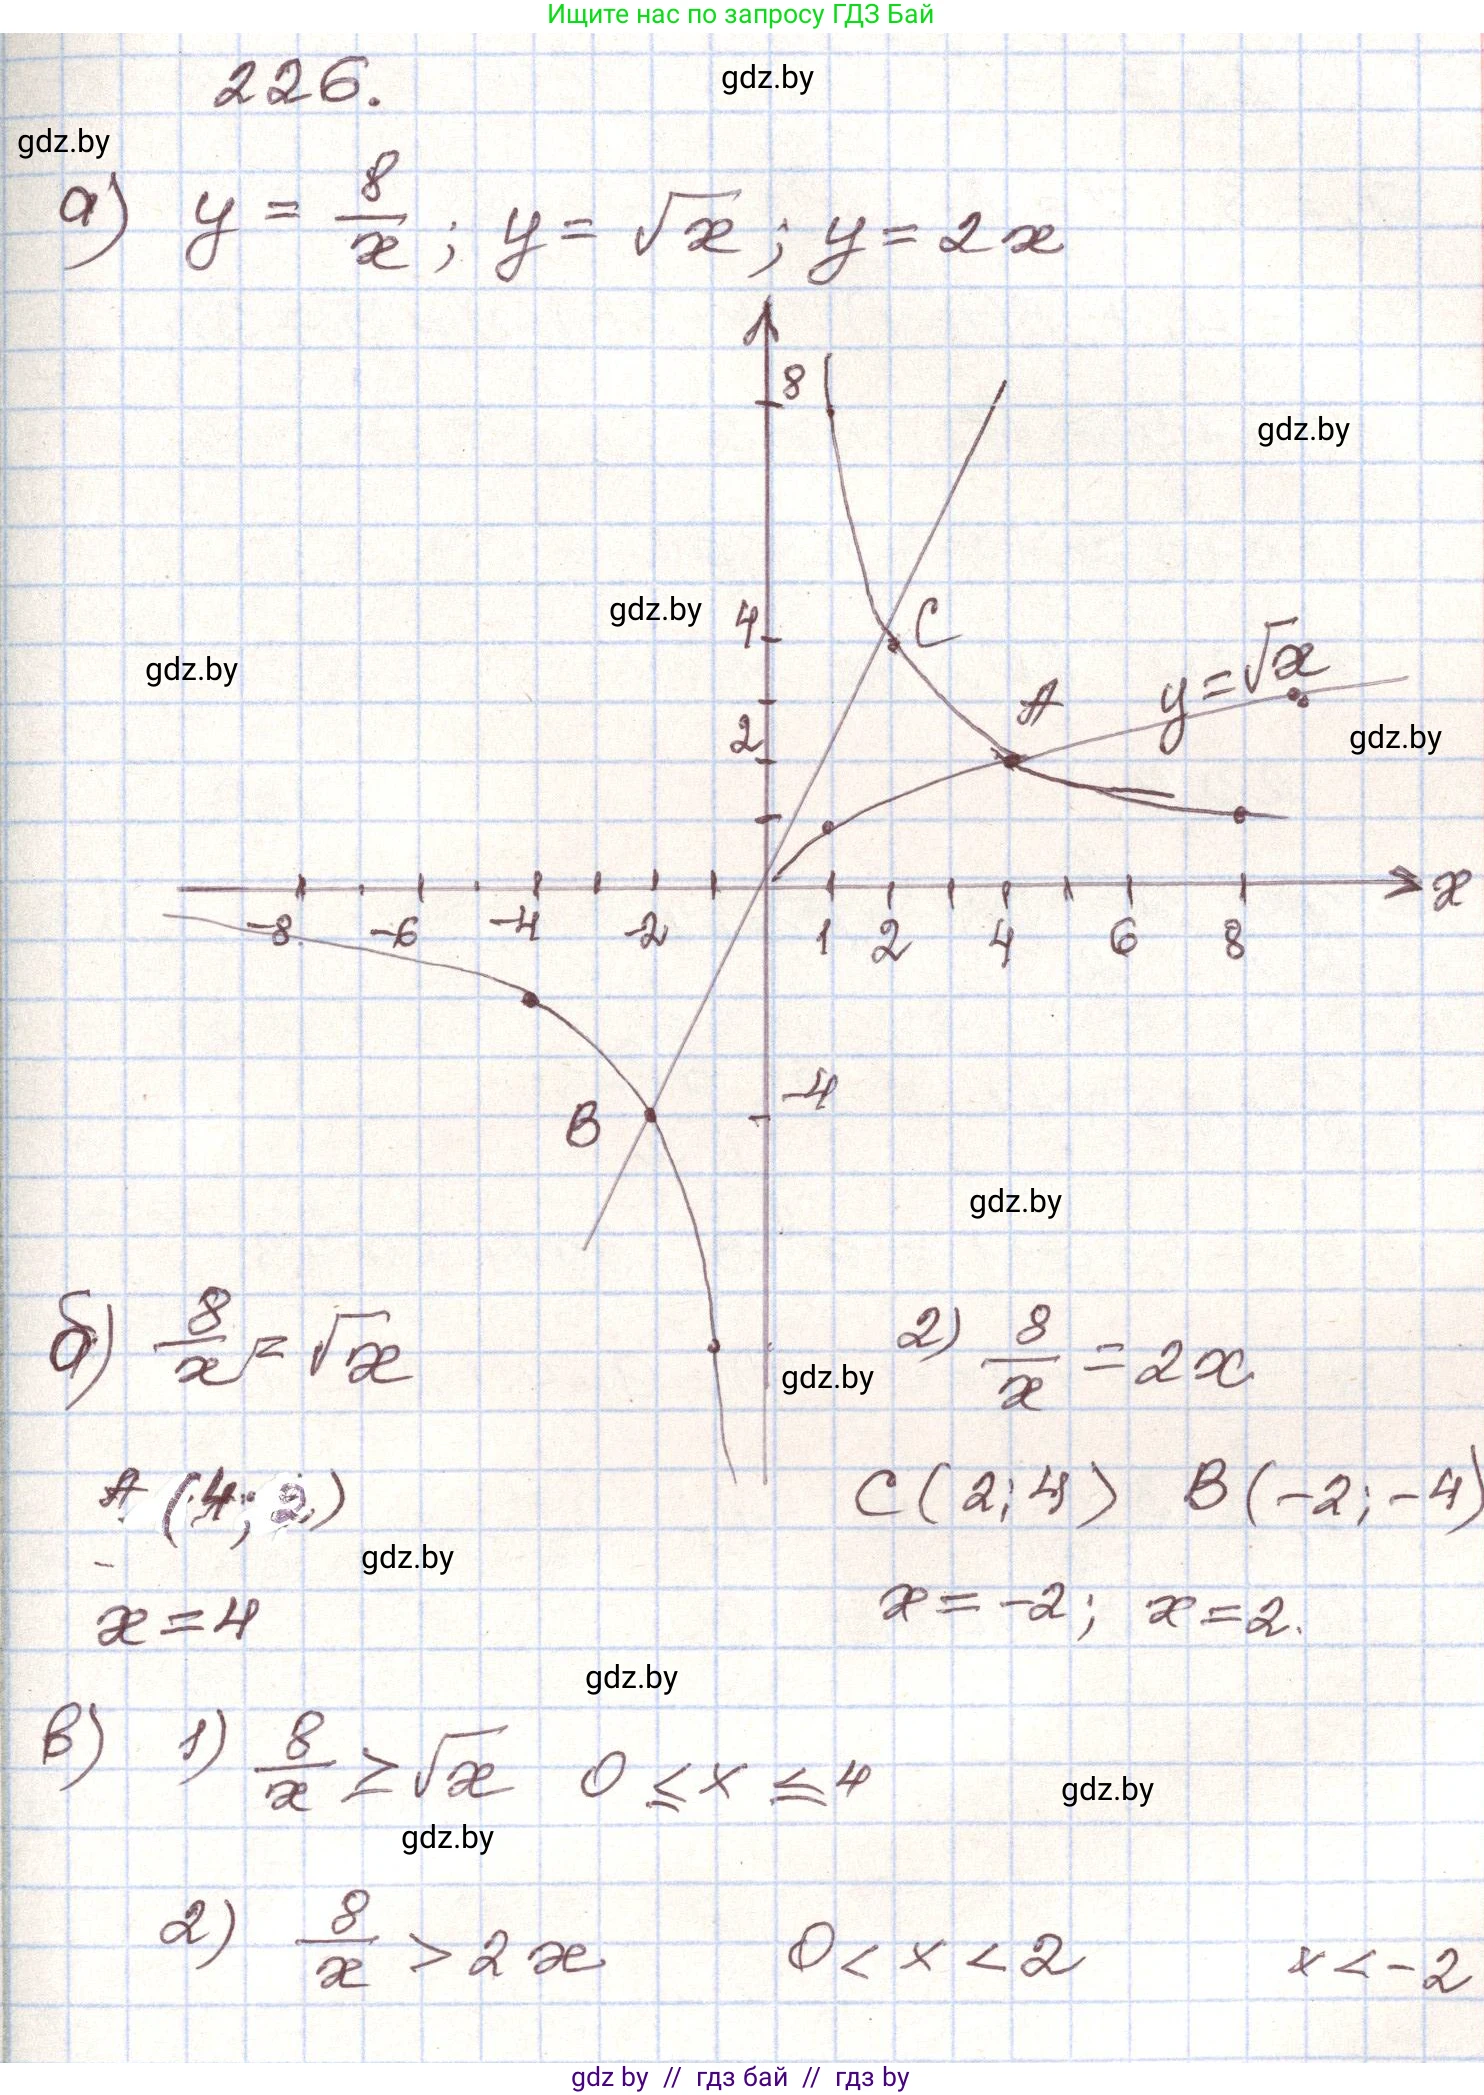 Ищите нас по запросу ГДЗ Бай
226.
gdz.by
gdz.by
а) y = 8/x ; y = √x ; y = 2x
8
gdz.by
4
C
gdz.by
gdz.by
A
y = √x
2
gdz.by
-8 -6 -4 -2 1 2 4 6 8 x
-4
B
gdz.by
б) 8/x = √x
2) 8/x = 2x
gdz.by
A (4; 2)
C (2; 4) B (-2; -4)
gdz.by
x = 4
x = -2; x = 2.
gdz.by
в) 1) 8/x ≥ √x 0 ≤ x ≤ 4
gdz.by
gdz.by
2) 8/x > 2x 0 < x < 2 x < -2
gdz by // гдз бай // гдз by